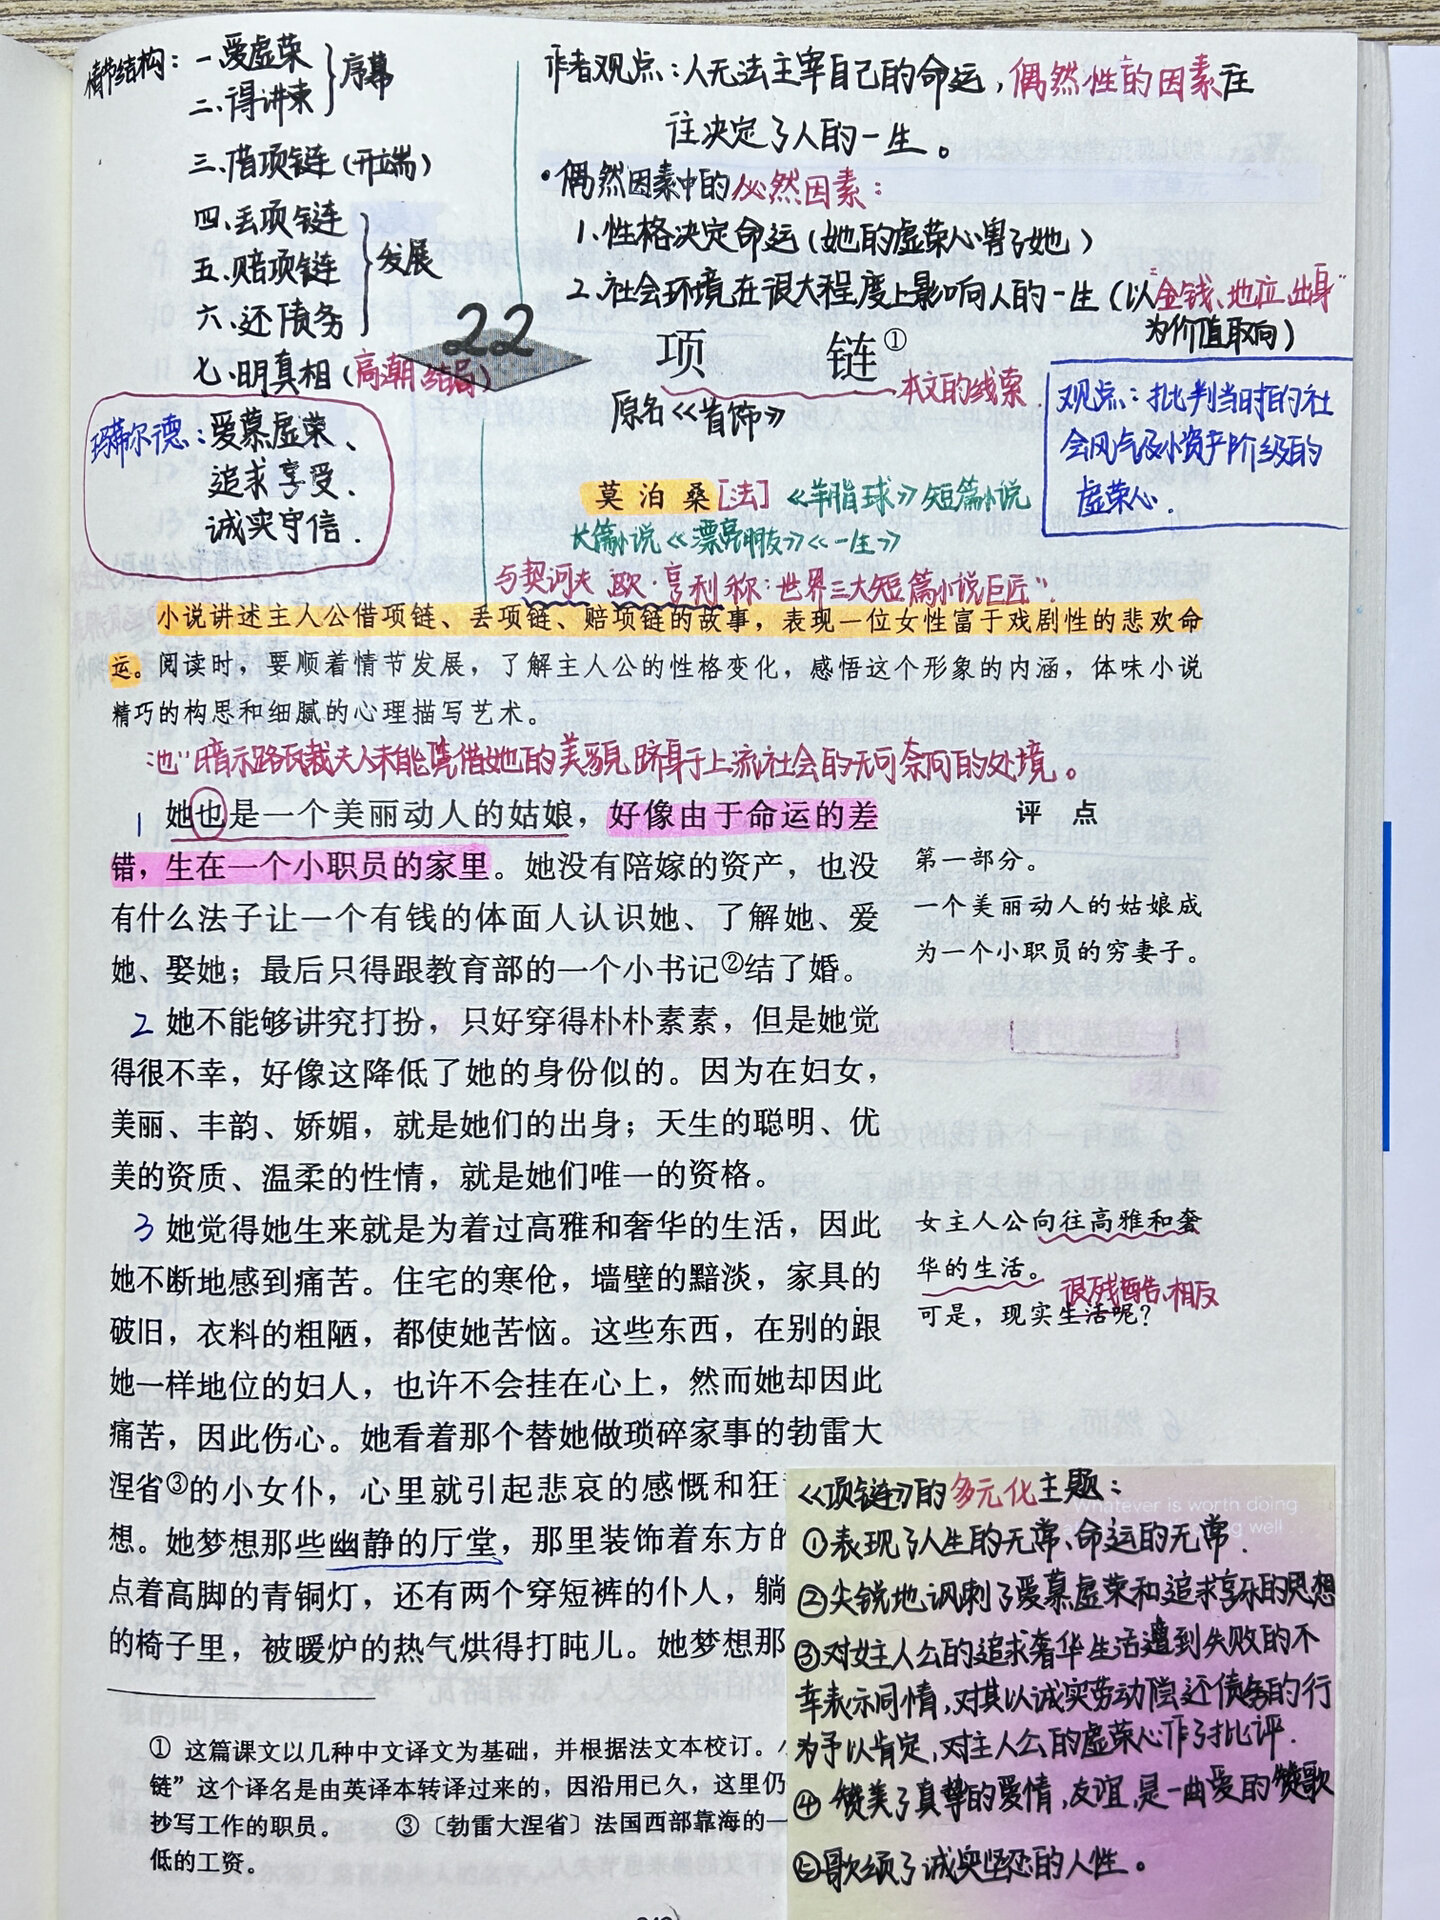 情节结构：一.爱虚荣
二.得讲束
序幕
三.借项链（开端）
四.丢项链
五.赔项链
六.还债务
发展
七.明真相（高潮.结局）
玛蒂尔德：爱慕虚荣、
追求享受.
诚实守信.
作者观点：人无法主宰自己的命运，偶然性的因素往
往决定了人的一生。
·偶然因素中的必然因素：
1.性格决定命运（她的虚荣心害了她）
2.社会环境在很大程度上影响人的一生（以“金钱、地位、出身”
为价值取向）
22 项 链①
本文的线索
原名《首饰》
观点：批判当时的社
会风气及小资产阶级的
虚荣心.
莫泊桑[法]《羊脂球》短篇小说
长篇小说《漂亮朋友》《一生》
与契诃夫 欧·亨利称：世界三大短篇小说巨匠”.
小说讲述主人公借项链、丢项链、赔项链的故事，表现一位女性富于戏剧性的悲欢命
运。阅读时，要顺着情节发展，了解主人公的性格变化，感悟这个形象的内涵，体味小说
精巧的构思和细腻的心理描写艺术。
“也”暗示路瓦栽夫人未能凭借她的美貌跻身于上流社会的无可奈何的处境。
1 她也是一个美丽动人的姑娘，好像由于命运的差
错，生在一个小职员的家里。她没有陪嫁的资产，也没
有什么法子让一个有钱的体面人认识她、了解她、爱
她、娶她；最后只得跟教育部的一个小书记②结了婚。
2 她不能够讲究打扮，只好穿得朴朴素素，但是她觉
得很不幸，好像这降低了她的身份似的。因为在妇女，
美丽、丰韵、娇媚，就是她们的出身；天生的聪明、优
美的资质、温柔的性情，就是她们唯一的资格。
3 她觉得她生来就是为着过高雅和奢华的生活，因此
她不断地感到痛苦。住宅的寒伧，墙壁的黯淡，家具的
破旧，衣料的粗陋，都使她苦恼。这些东西，在别的跟
她一样地位的妇人，也许不会挂在心上，然而她却因此
痛苦，因此伤心。她看着那个替她做琐碎家事的勃雷大
涅省③的小女仆，心里就引起悲哀的感慨和狂
想。她梦想那些幽静的厅堂，那里装饰着东方的
点着高脚的青铜灯，还有两个穿短裤的仆人，躺
的椅子里，被暖炉的热气烘得打盹儿。她梦想那
评 点
第一部分。
一个美丽动人的姑娘成
为一个小职员的穷妻子。
女主人公向往高雅和奢
华的生活。
很残酷、相反
可是，现实生活呢？
《项链》的多元化主题：
Whatever is worth doing
①表现了人生的无常、命运的无常.
②尖锐地讽刺了爱慕虚荣和追求享乐的思想
③对女主人公的追求奢华生活遭到失败的不
幸表示同情，对其以诚实劳动偿还债务的行
为予以肯定，对主人公的虚荣心作了批评.
④赞美了真挚的爱情，友谊，是一曲爱的赞歌
⑤歌颂了诚实坚忍的人性。
① 这篇课文以几种中文译文为基础，并根据法文本校订。
链”这个译名是由英译本转译过来的，因沿用已久，这里仍
抄写工作的职员。 ③〔勃雷大涅省〕法国西部靠海的一
低的工资。